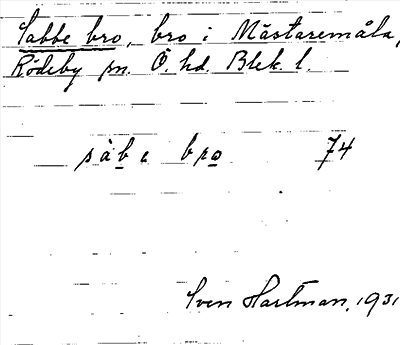 Sabbe bro, bro i Mästaremåla,
Rödeby sn. Ö. hd. Blek. l.
sàbe bro 74
Sven Hartman, 1931